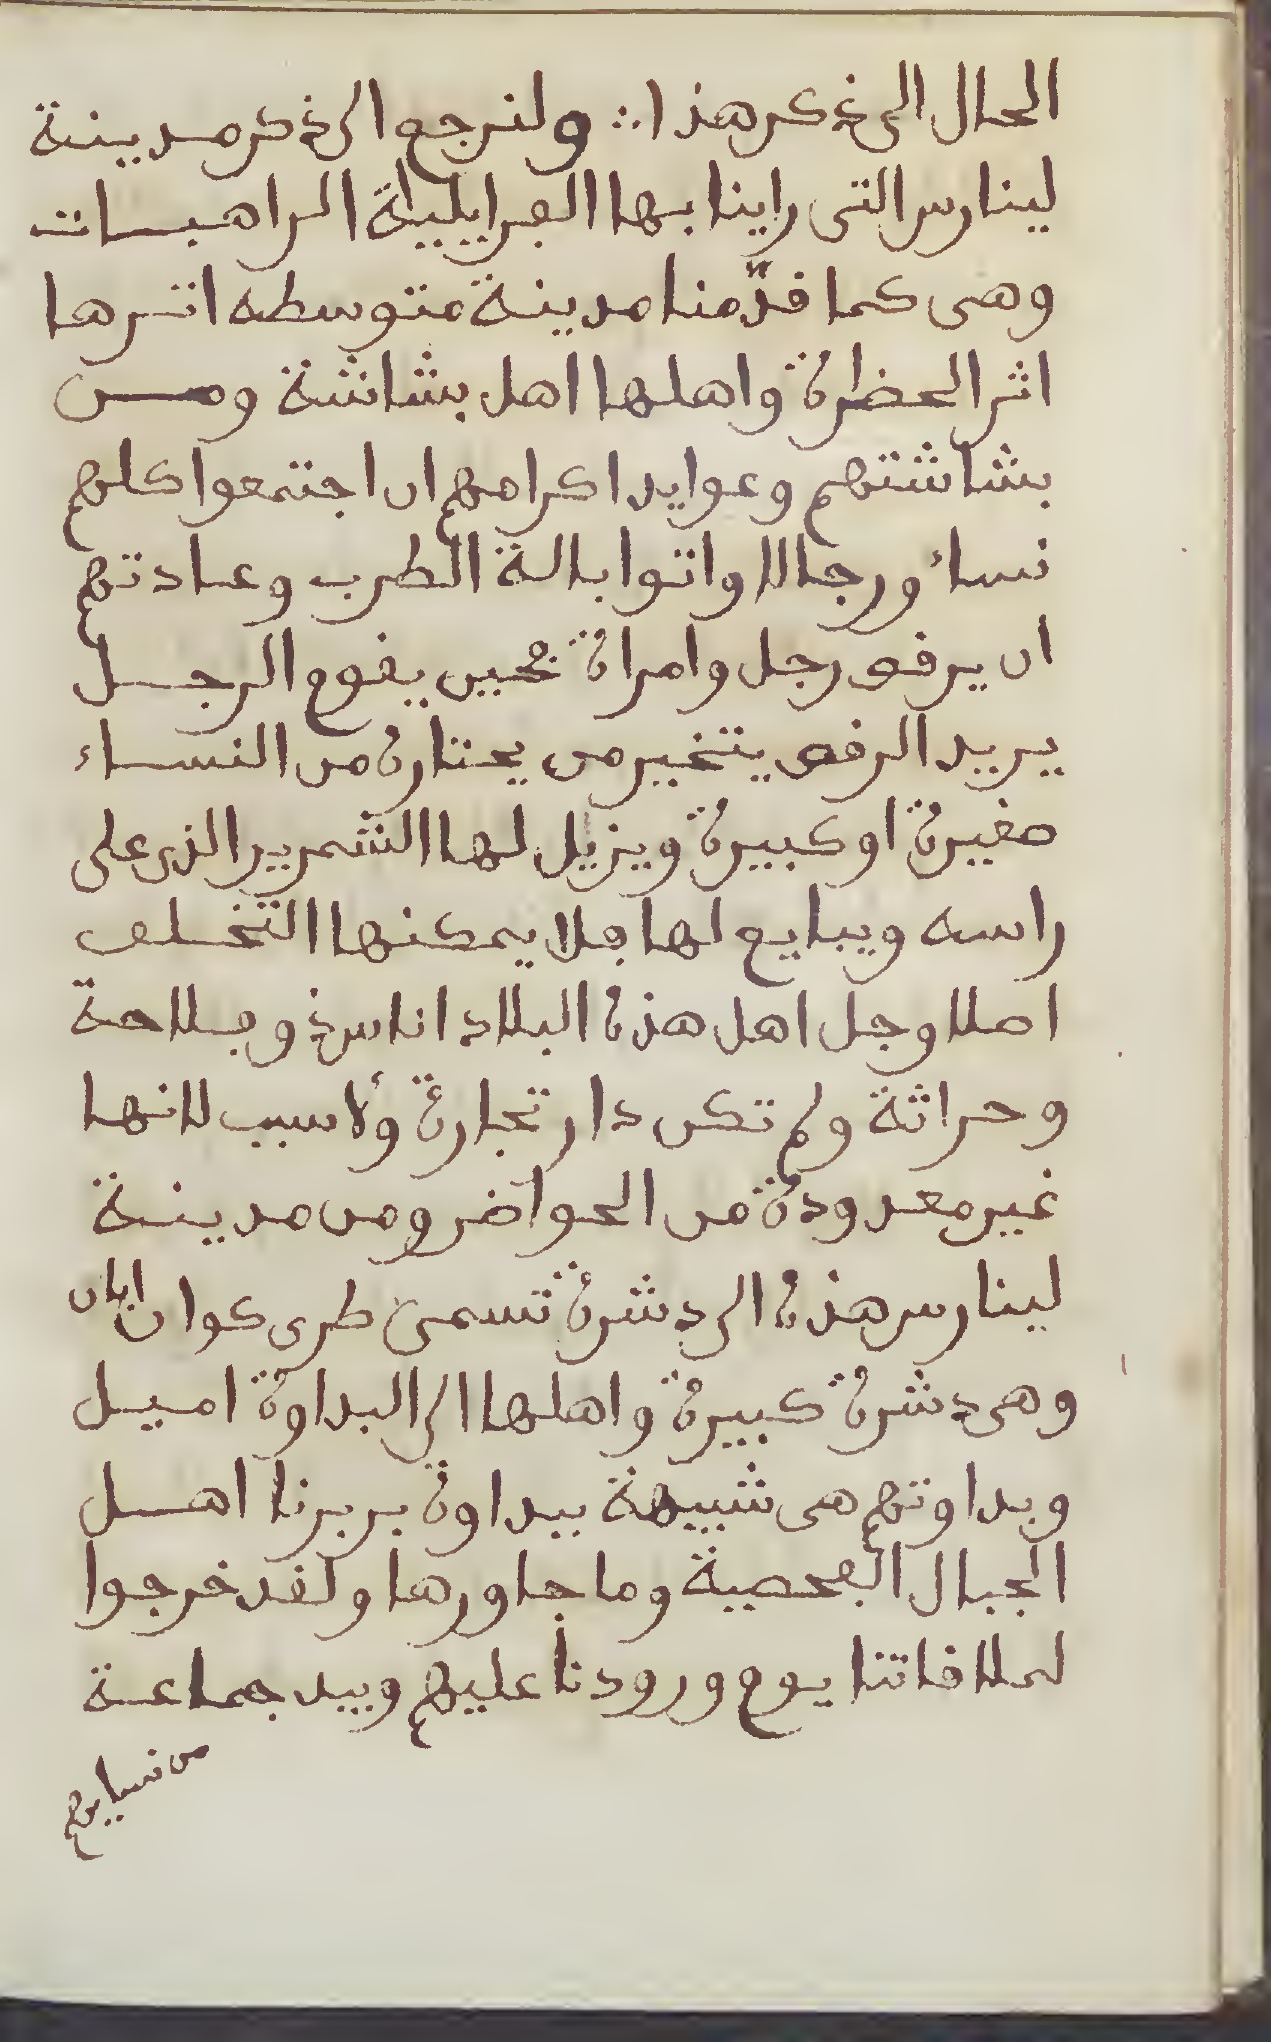 الحال الى ذكر هذا ∴ ولنرجع الى ذكر مدينة
لينارس التى راينا بها الفرايلية الراهبات
وهى كما قدّمنا مدينة متوسطه اثرها
اثر الحضارة واهلها اهل بشاشة ومن
بشاشتهم وعوايد اكرامهم ان اجتمعوا كلهم
نساءً ورجالا واتوا بالة الطرب وعادتهم
ان يرقص رجل وامراة فحين يقوم الرجل
يريد الرقص يتخير من يختاره من النساء
صغيرة او كبيرة ويزيل لها الشمرير الذى على
راسه ويبايع لها فلا يمكنها التخلف
اصلا وجل اهل هذه البلاد اناس ذو فلاحة
وحراثة ولم تكن دار تجارة ولا سبب لانها
غير معدودة من الحواضر ومن مدينة
لينارس هذه الى دشرة تسمى طرى كوان ابان
وهى دشرة كبيرة واهلها الى البداوة اميل
وبداوتهم هى شبيهة ببداوة بربرنا اهل
الجبال الفحصية وما جاورها ولقد خرجوا
لملاقاتنا يوم ورودنا عليهم وبيد جماعة
من نسايهم